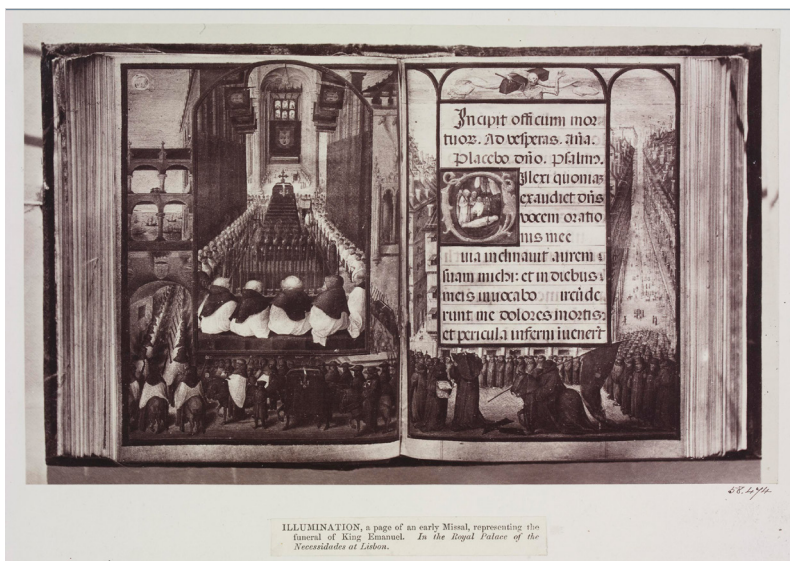 Incipit officium mor
tuoꝝ. Ad vesperas. Aña
Placebo. dño. Psalmꝰ.
Dilexi quoniaꝫ
exaudiet dñs
vocem oratio
nis mee
uia inclinauit aurem
suam michi: et in diebus
meis inuocabo
runt me dolores mortis
et pericula inferni inuener̄t
58.474
ILLUMINATION, a page of an early Missal, representing the
funeral of King Emanuel. In the Royal Palace of the
Necessidades at Lisbon.